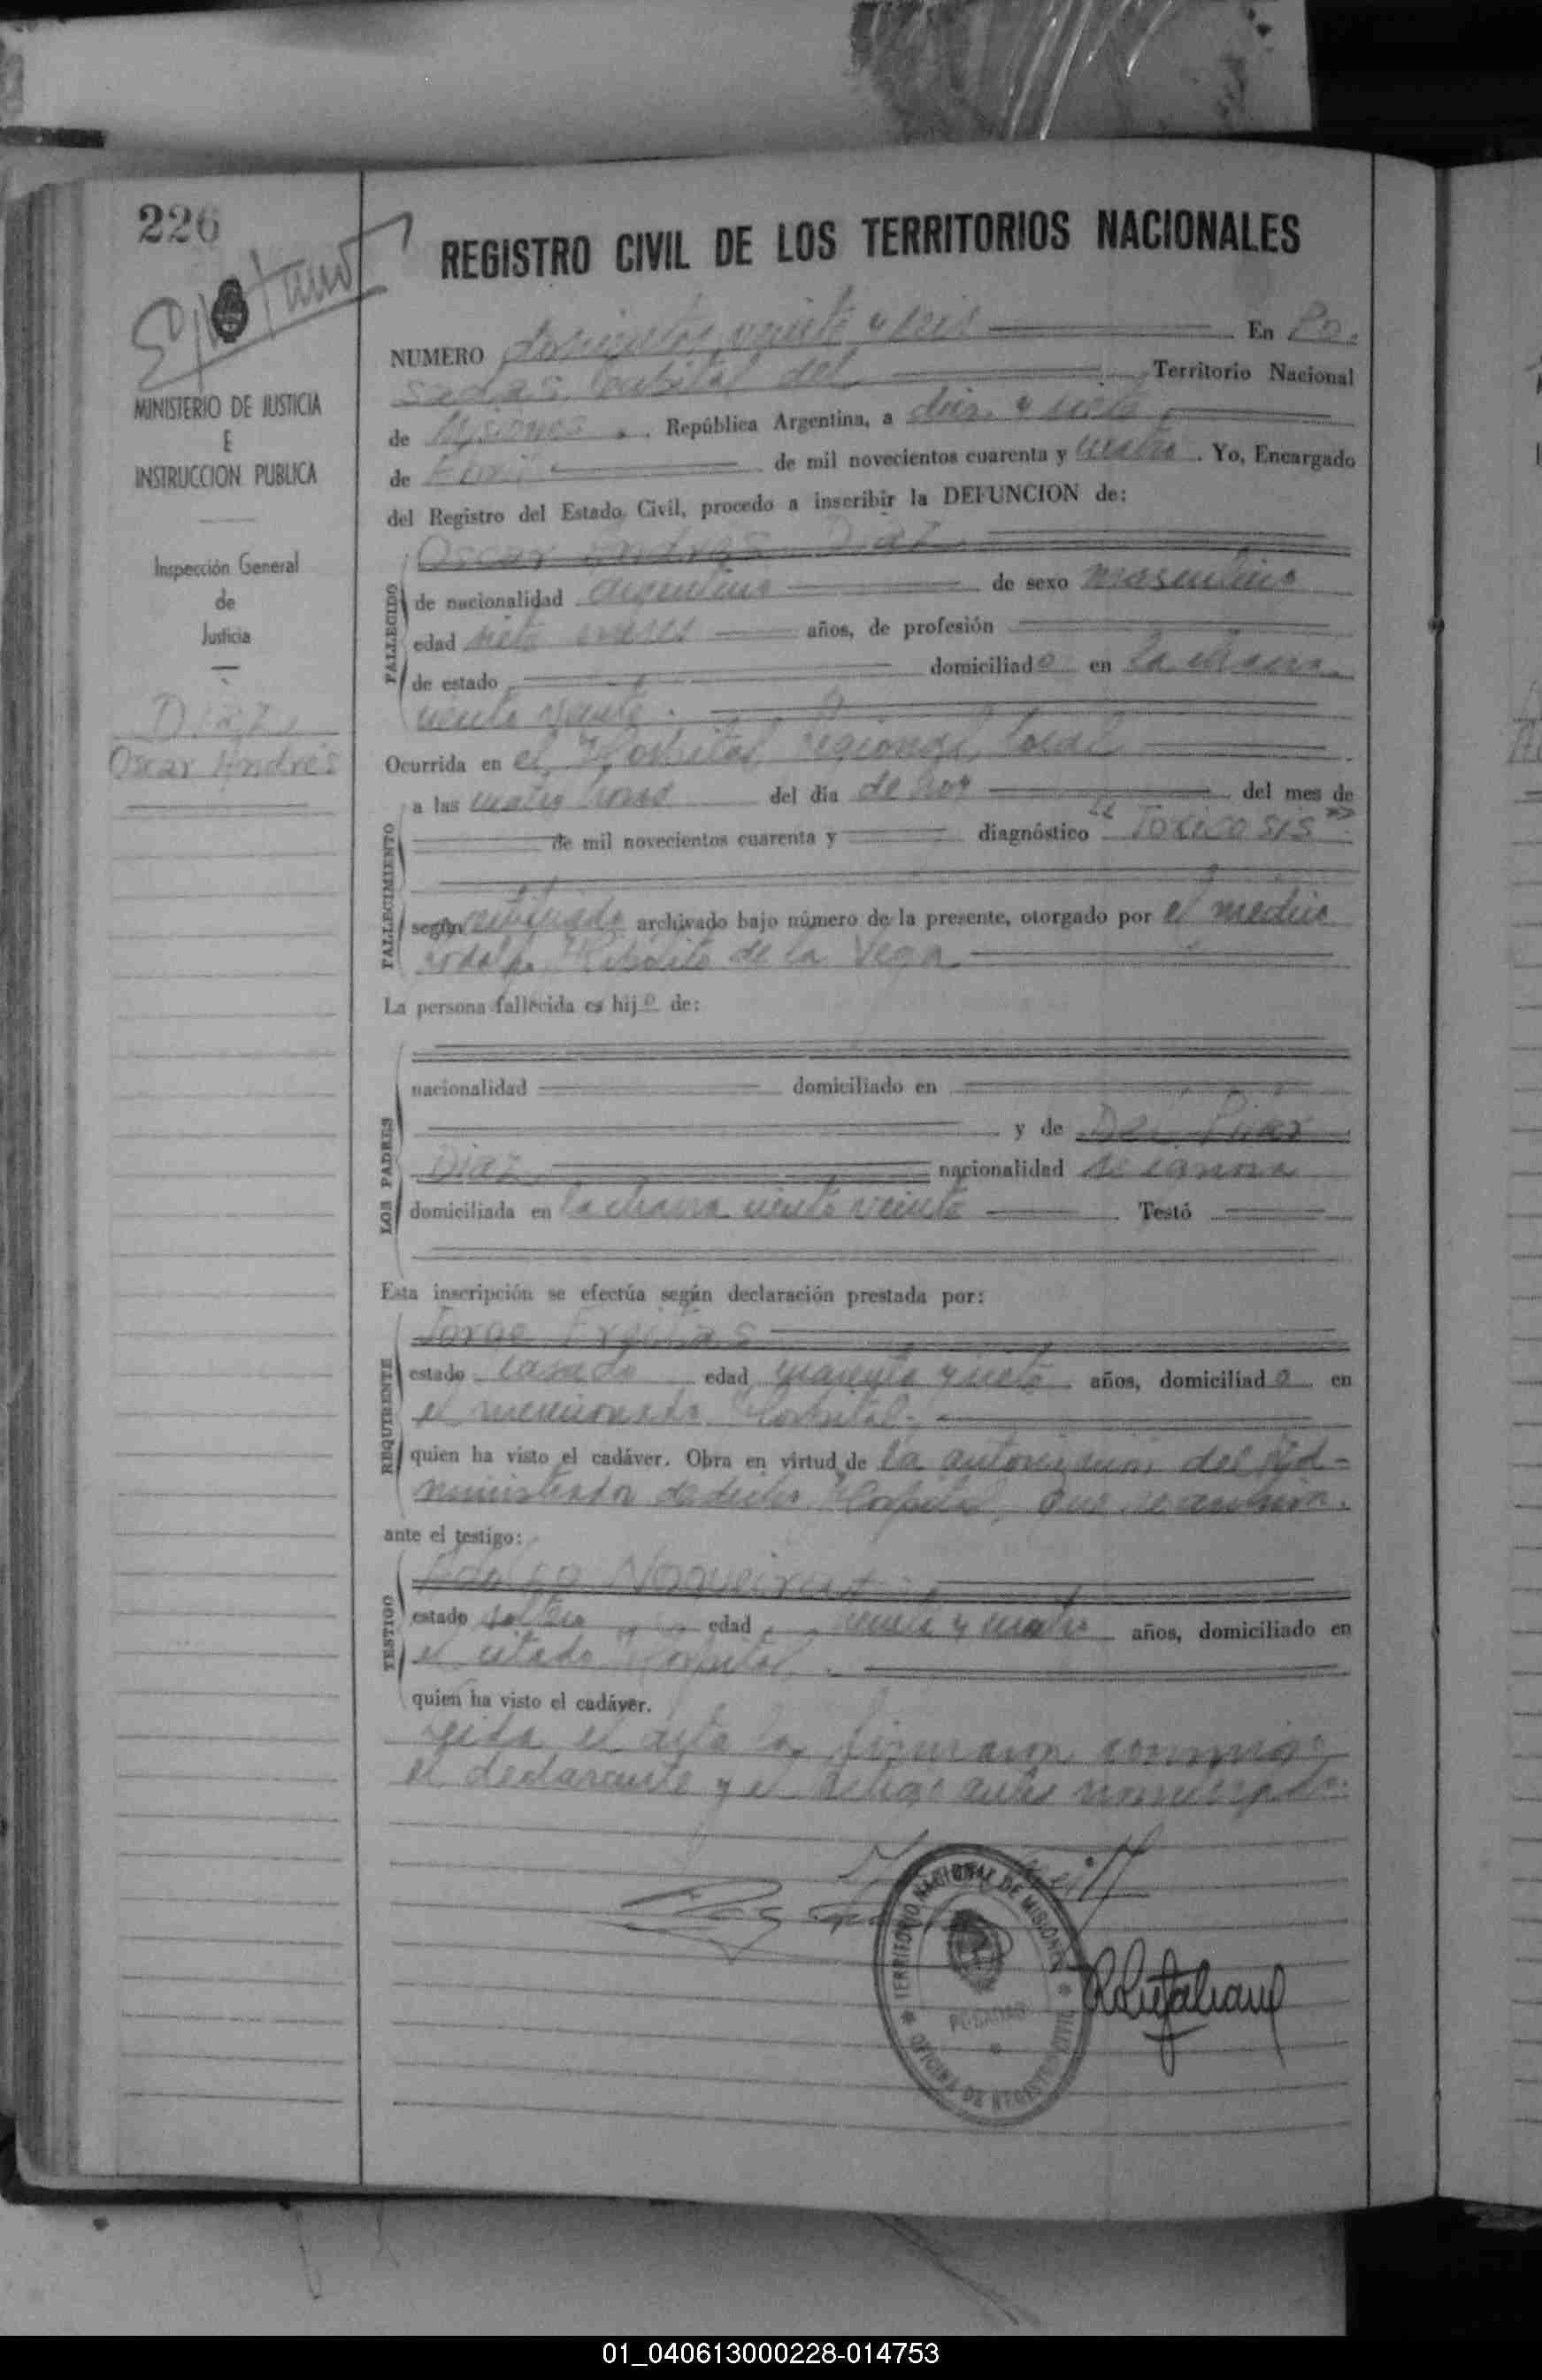 226
REGISTRO CIVIL DE LOS TERRITORIOS NACIONALES
MINISTERIO DE JUSTICIA
E
INSTRUCCION PUBLICA
Inspección General
de
Justicia
Diaz,
Oscar Andrés
NUMERO doscientos veinte y seis En Po-
sadas Capital del Territorio Nacional
de Misiones, República Argentina, a diez y siete
de Abril de mil novecientos cuarenta y cuatro. Yo, Encargado
del Registro del Estado Civil, procedo a inscribir la DEFUNCION de:
FALLECIDO
Oscar Andrés Diaz
de nacionalidad argentino de sexo masculino
edad siete meses años, de profesión
de estado domiciliado en la chacra
ciento veinte.
Ocurrida en el Hospital regional local
FALLECIMIENTO
a las cuatro horas del día de hoy del mes de
de mil novecientos cuarenta y diagnóstico "Toxicosis"
según certificado archivado bajo número de la presente, otorgado por el médico
rodolfo Hipólito de la Vega
La persona fallecida es hijo de:
LOS PADRES
nacionalidad domiciliado en
y de Del Pilar
Diaz nacionalidad
domiciliada en la chacra ciento veinte Testó
Esta inscripción se efectúa según declaración prestada por:
REQUIRENTE
Jorge
estado casado edad cuarenta y siete años, domiciliado en
el mencionado Hospital.
quien ha visto el cadáver. Obra en virtud de la autorización del Ad-
ministrador de dicho Hospital, que se archiva.
ante el testigo:
TESTIGO
Adolfo
estado soltero edad veinte y cuatro años, domiciliado en
el citado Hospital.
quien ha visto el cadáver.
Leida el acta la firmaron conmigo
el declarante y el testigo antes nombrado.
TERRITORIO NACIONAL DE MISIONES
POSADAS
OFICINA DE REGISTRO CIVIL
01_040613000228-014753